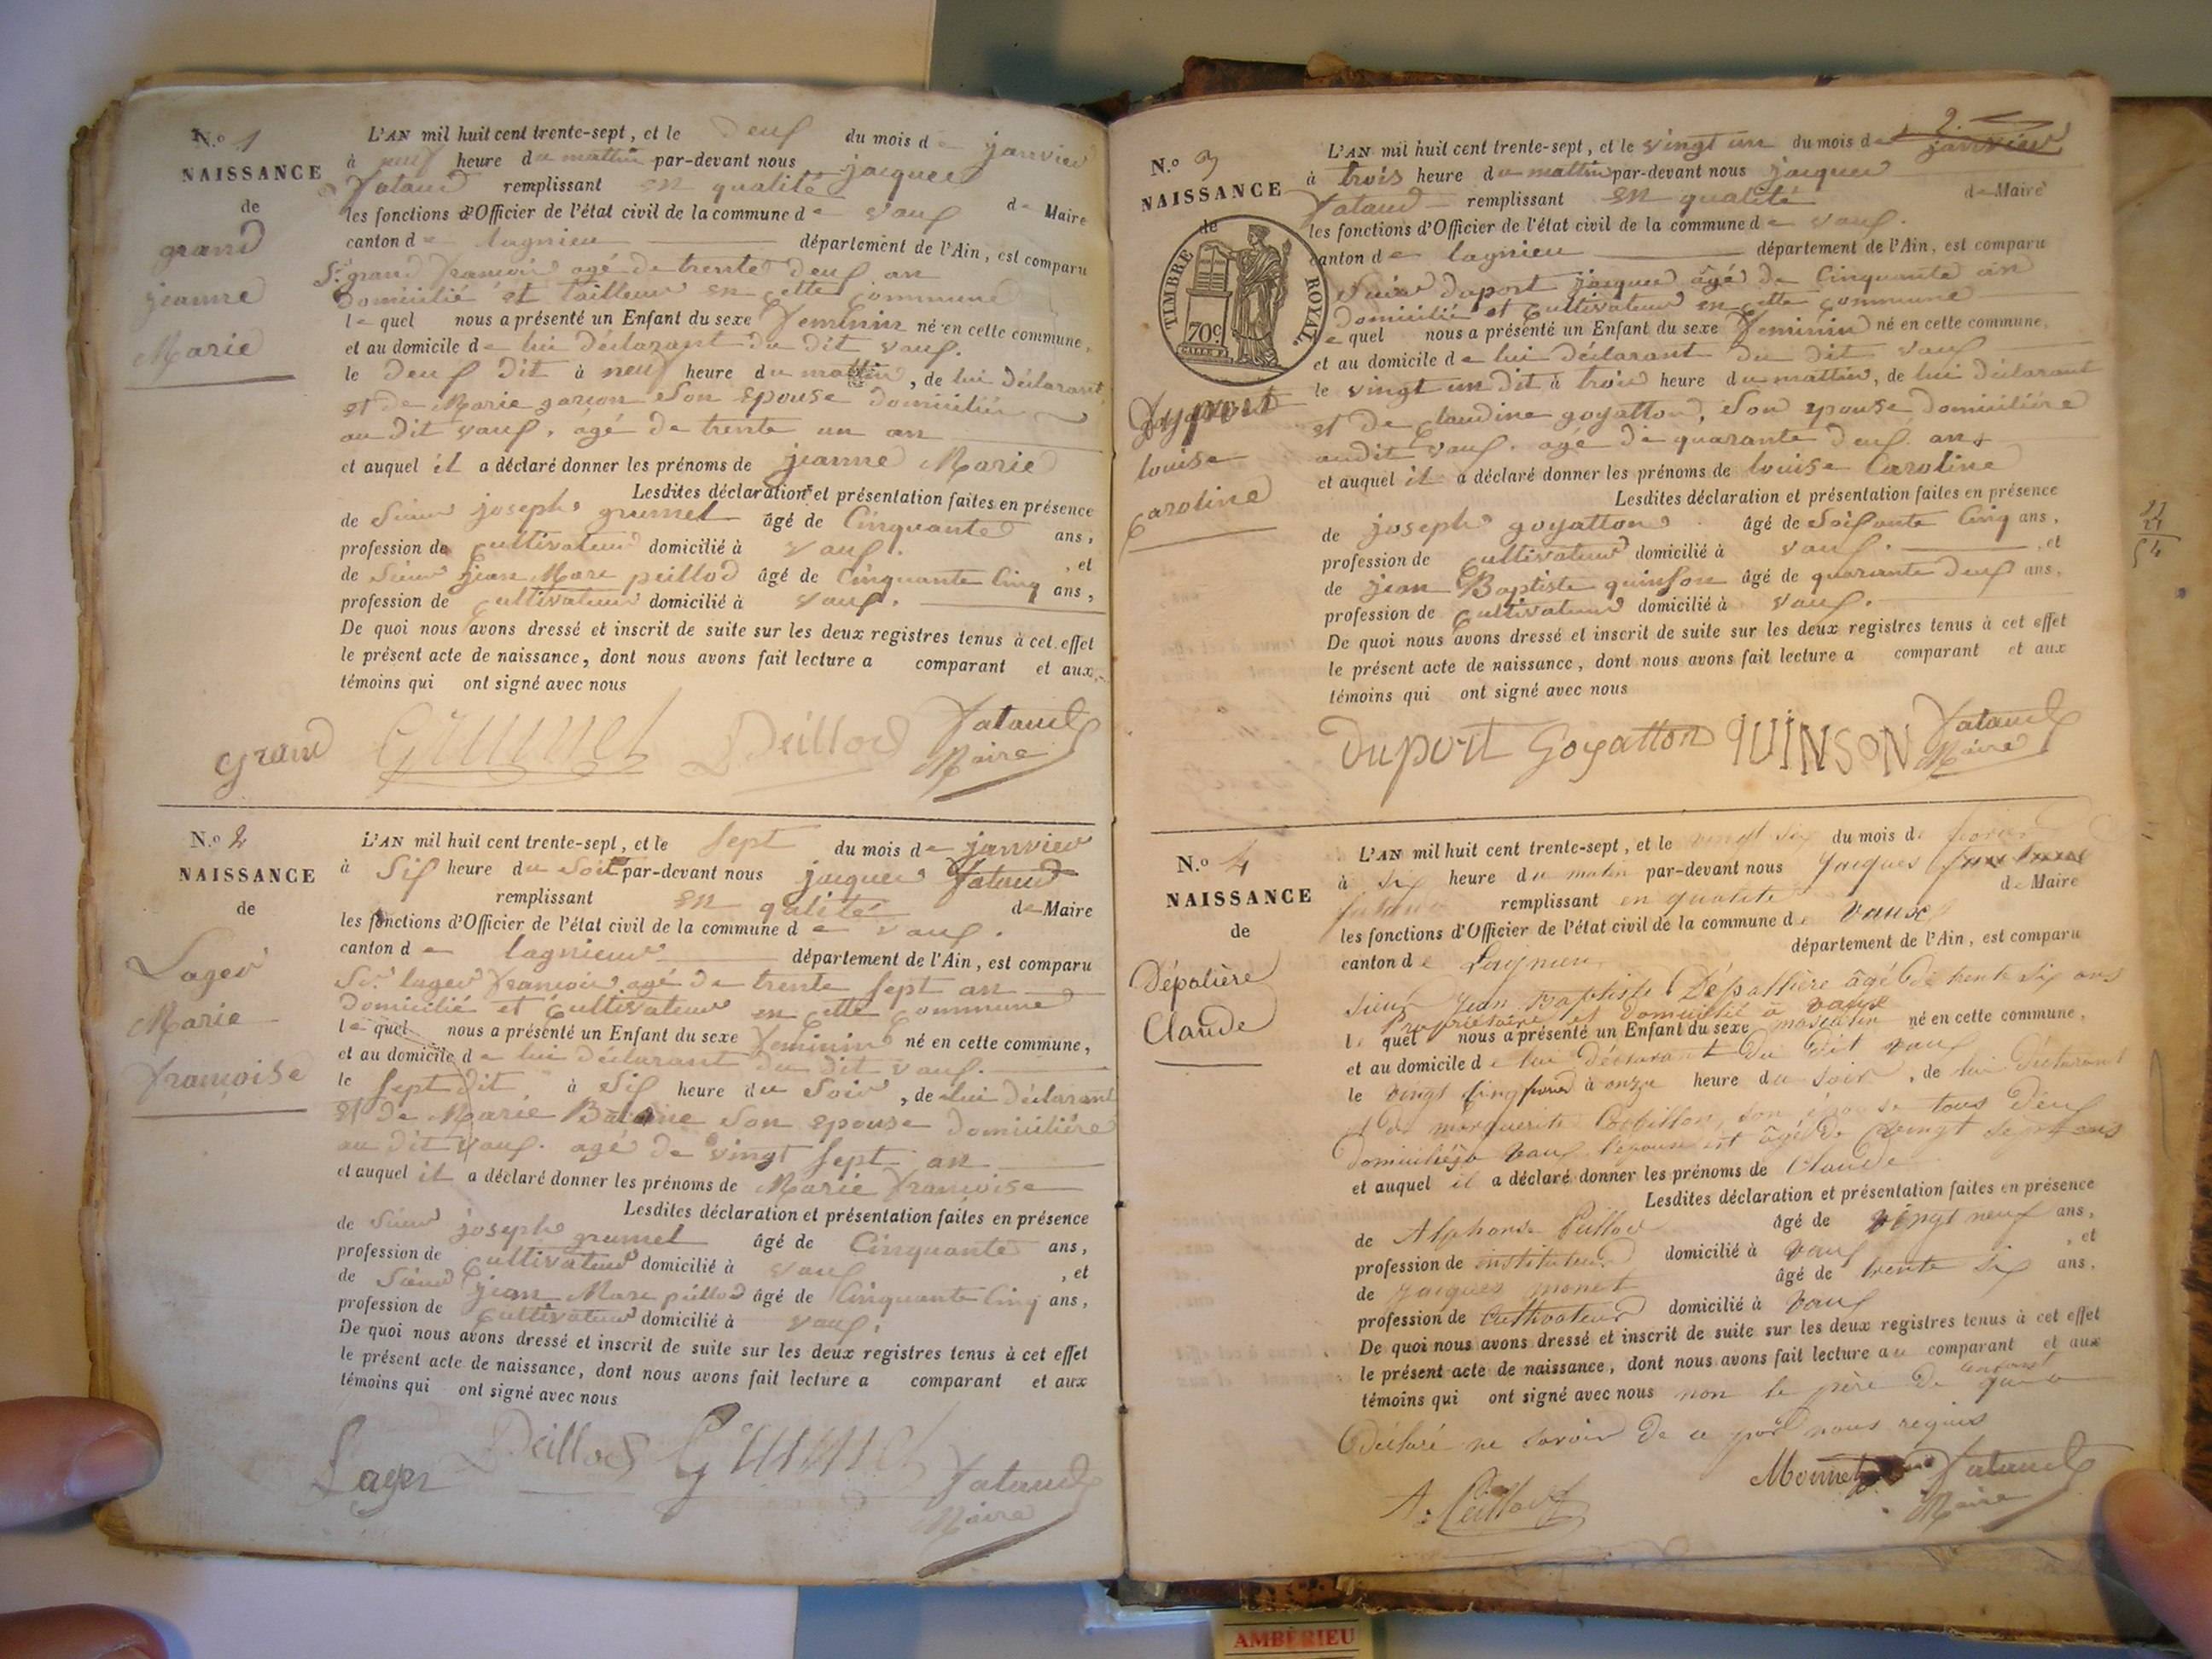 N.o 1
NAISSANCE
de
grand
jeanne
Marie
L'AN mil huit cent trente-sept, et le deux du mois de janvier
à neuf heure du mattin par-devant nous jacques
Fataud remplissant en qualité de Maire
les fonctions d'Officier de l'état civil de la commune de vaux
canton de lagnieu département de l'Ain, est comparu
Sr grand françois agé de trente deux an
domicilié et tailleur en cette commune
le quel nous a présenté un Enfant du sexe feminin né en cette commune,
et au domicile de lui déclarant du dit vaux.
le deux dit à neuf heure du mattin, de lui déclarant
et de Marie garion son epouse domiciliée
au dit vaux. agé de trente un an
et auquel il a déclaré donner les prénoms de jeanne Marie
Lesdites déclaration et présentation faites en présence
de Sieur joseph grumet âgé de Cinquante ans,
profession de cultivateur domicilié à vaux. , et
de Sieur jean Marc peillod âgé de Cinquante Cinq ans,
profession de cultivateur domicilié à vaux.
De quoi nous avons dressé et inscrit de suite sur les deux registres tenus à cet effet
le présent acte de naissance, dont nous avons fait lecture a comparant et aux
témoins qui ont signé avec nous
grand Grumet Peillod Fataud
Maire
N.o 2
NAISSANCE
de
Lager
Marie
françoise
L'AN mil huit cent trente-sept, et le sept du mois de janvier
à Six heure du Soir par-devant nous jacques Fataud
remplissant en qalité de Maire
les fonctions d'Officier de l'état civil de la commune de vaux.
canton de lagnieu département de l'Ain, est comparu
Sr. lager françois agé de trente sept an
domicilié et cultivateur en cette commune
le quel nous a présenté un Enfant du sexe feminin né en cette commune,
et au domicile de lui déclarant du dit vaux.
le sept dit à Six heure du Soir, de lui déclarant
et de Marie son epouse domiciliére
au dit vaux. agé de vingt sept an
et auquel il a déclaré donner les prénoms de Marie françoise
Lesdites déclaration et présentation faites en présence
de Sieur joseph grumet âgé de Cinquante ans,
profession de cultivateur domicilié à vaux , et
de Sieur jean Marc peillod âgé de Cinquante Cinq ans,
profession de cultivateur domicilié à vaux.
De quoi nous avons dressé et inscrit de suite sur les deux registres tenus à cet effet
le présent acte de naissance, dont nous avons fait lecture a comparant et aux
témoins qui ont signé avec nous
Lager Peillod Grumet Fataud
Maire
2.
N.o 3
NAISSANCE
de
TIMBRE ROYAL.
70c
Dupport
louise
Caroline
L'AN mil huit cent trente-sept, et le vingt un du mois de janvier
à trois heure du mattin par-devant nous jacques
Fataud remplissant en qualité de Maire
les fonctions d'Officier de l'état civil de la commune de vaux.
canton de lagnieu département de l'Ain, est comparu
Sieur duport jacques âgé de Cinquante an
domicilié et cultivateur en cette commune
le quel nous a présenté un Enfant du sexe feminin né en cette commune,
et au domicile de lui déclarant du dit vaux
le vingt un dit à trois heure du mattin, de lui déclarant
et de claudine goyatton, son epouse domiciliére
audit vaux. agé de quarante deux ans
et auquel il a déclaré donner les prénoms de louise Caroline
Lesdites déclaration et présentation faites en présence
de joseph goyatton âgé de Soixante Cinq ans,
profession de cultivateur domicilié à vaux. , et
de jean Baptiste quinson âgé de quarante deux ans,
profession de cultivateur domicilié à vaux.
De quoi nous avons dressé et inscrit de suite sur les deux registres tenus à cet effet
le présent acte de naissance, dont nous avons fait lecture a comparant et aux
témoins qui ont signé avec nous
Duport Goyatton QUINSON Fataud
Maire
N.o 4
NAISSANCE
de
Dépalière
Claude
L'AN mil huit cent trente-sept, et le vingt six du mois de
à six heure du matin par-devant nous Jacques
fataud remplissant en qualité de Maire
les fonctions d'Officier de l'état civil de la commune de Vaux
canton de Lagnieu département de l'Ain, est comparu
Sieur Jean Baptiste Dépallière âgé de trente six ans
Propriétaire et domicilié à vaux
le quel nous a présenté un Enfant du sexe masculin né en cette commune,
et au domicile de lui déclarant du dit vaux
le vingt cinq à onze heure du soir, de lui déclarant
et de marguerite son épouse tous deux
domiciliés à vaux l'épouse est âgée de vingt sept ans
et auquel il a déclaré donner les prénoms de Claude
Lesdites déclaration et présentation faites en présence
de Alphonse Peillod âgé de vingt neuf ans,
profession de instituteur domicilié à vaux , et
de Jacques monet âgé de trente six ans.
profession de Cultivateur domicilié à vaux
De quoi nous avons dressé et inscrit de suite sur les deux registres tenus à cet effet
le présent acte de naissance, dont nous avons fait lecture au comparant et aux
témoins qui ont signé avec nous non le père de enfant qui a
déclaré ne savoir de ce par nous requis
A. Peillod Monnet Fataud
Maire
AMBÉRIEU